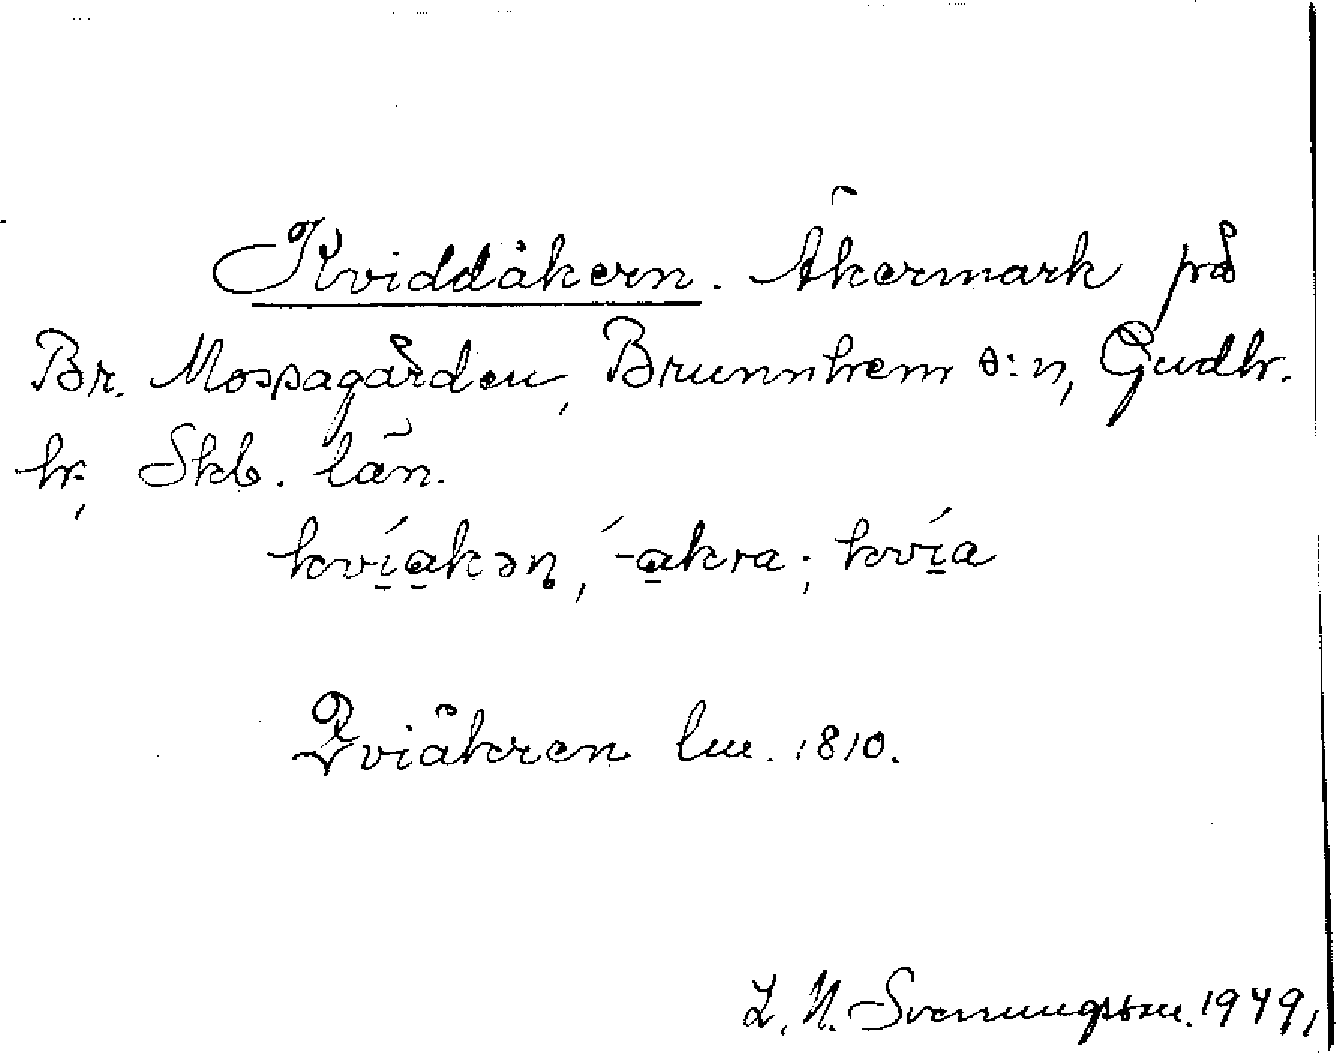 Kviddåkern. Åkermark på
Br. Mossagården, Brunnhem s:n, Gudh.
hr, Skb. län.
kvíakən, ´-akra; kvía
Qviåkeren lm. 1810.
L. N. Svenungsson. 1949,